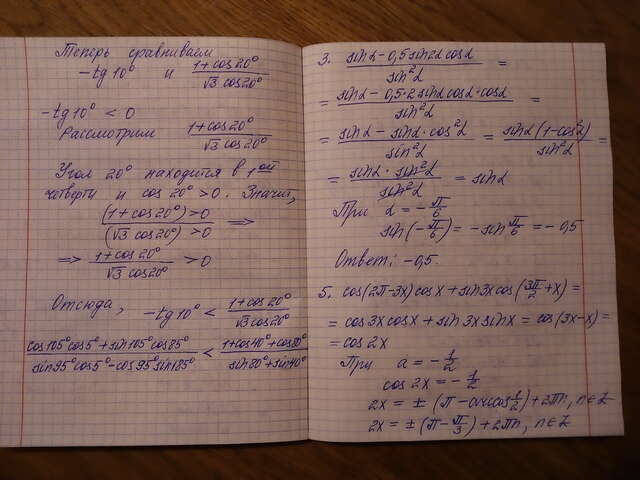 Теперь сравниваем
-tg 10° и (1+cos 20°)/(√3 cos 20°)
-tg 10° < 0
Рассмотрим (1+cos 20°)/(√3 cos 20°)
Угол 20° находится в 1ой
четверти и cos 20° > 0. Значит,
(1+cos 20°) > 0 / (√3 cos 20°) > 0 =>
=> (1+cos 20°)/(√3 cos 20°) > 0
Отсюда, -tg 10° < (1+cos 20°)/(√3 cos 20°)
(cos 105° cos 5° + sin 105° cos 85°)/(sin 95° cos 5° - cos 95° sin 185°) < (1+cos 40° + cos 80°)/(sin 80° + sin 40°)
3. (sin α - 0,5 sin 2α cos α)/(sin²α) =
= (sin α - 0,5·2 sin α cos α · cos α)/(sin²α) =
= (sin α - sin α · cos²α)/(sin²α) = (sin α (1-cos²α))/(sin²α) =
= (sin α · sin²α)/(sin²α) = sin α
При α = -π/6
sin(-π/6) = -sin π/6 = -0,5
Ответ: -0,5.
5. cos(2π-3x)cos x + sin 3x cos(3π/2 + x) =
= cos 3x cos x + sin 3x sin x = cos(3x-x) =
= cos 2x
При a = -1/2
cos 2x = -1/2
2x = ± (π - arccos 1/2) + 2πn, n∈Z
2x = ± (π - π/3) + 2πn, n∈Z